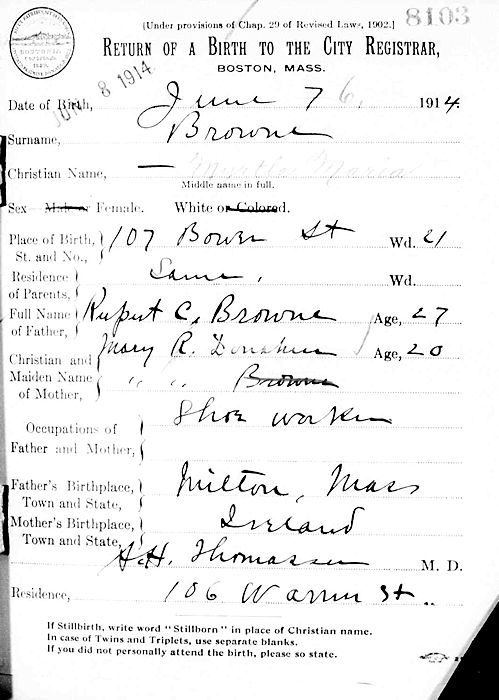 [Under provisions of Chap. 29 of Revised Laws, 1902.] 8103
RETURN OF A BIRTH TO THE CITY REGISTRAR,
BOSTON, MASS.
JUN 8 1914
Date of Birth, June 7 6, 1914.
Surname, Browne
Christian Name, — Myrtle Maria
Middle name in full.
Sex Male or Female. White or Colored.
Place of Birth, St. and No., 107 Bower St Wd. 21
Residence of Parents, Same, Wd.
Full Name of Father, Rupert C. Browne Age, 27
Christian and Maiden Name of Mother, Mary R. Donahue Age, 20
" " Browne
Occupations of Father and Mother, Shoe worker
Father's Birthplace, Town and State, Milton, Mass
Mother's Birthplace, Town and State, Ireland
M. D.
Residence, 106 Warren St..
If Stillbirth, write word "Stillborn" in place of Christian name.
In case of Twins and Triplets, use separate blanks.
If you did not personally attend the birth, please so state.